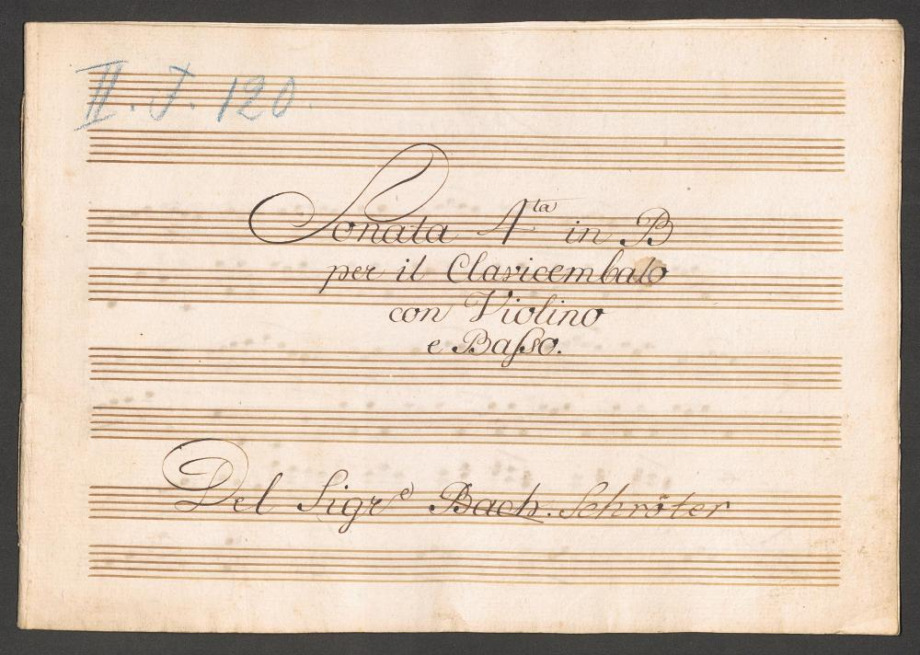 II. J. 120.
Sonata 4ta in B
per il Clavicembalo
con Violino
e Baſso.
Del Sigre Bach. Schröter